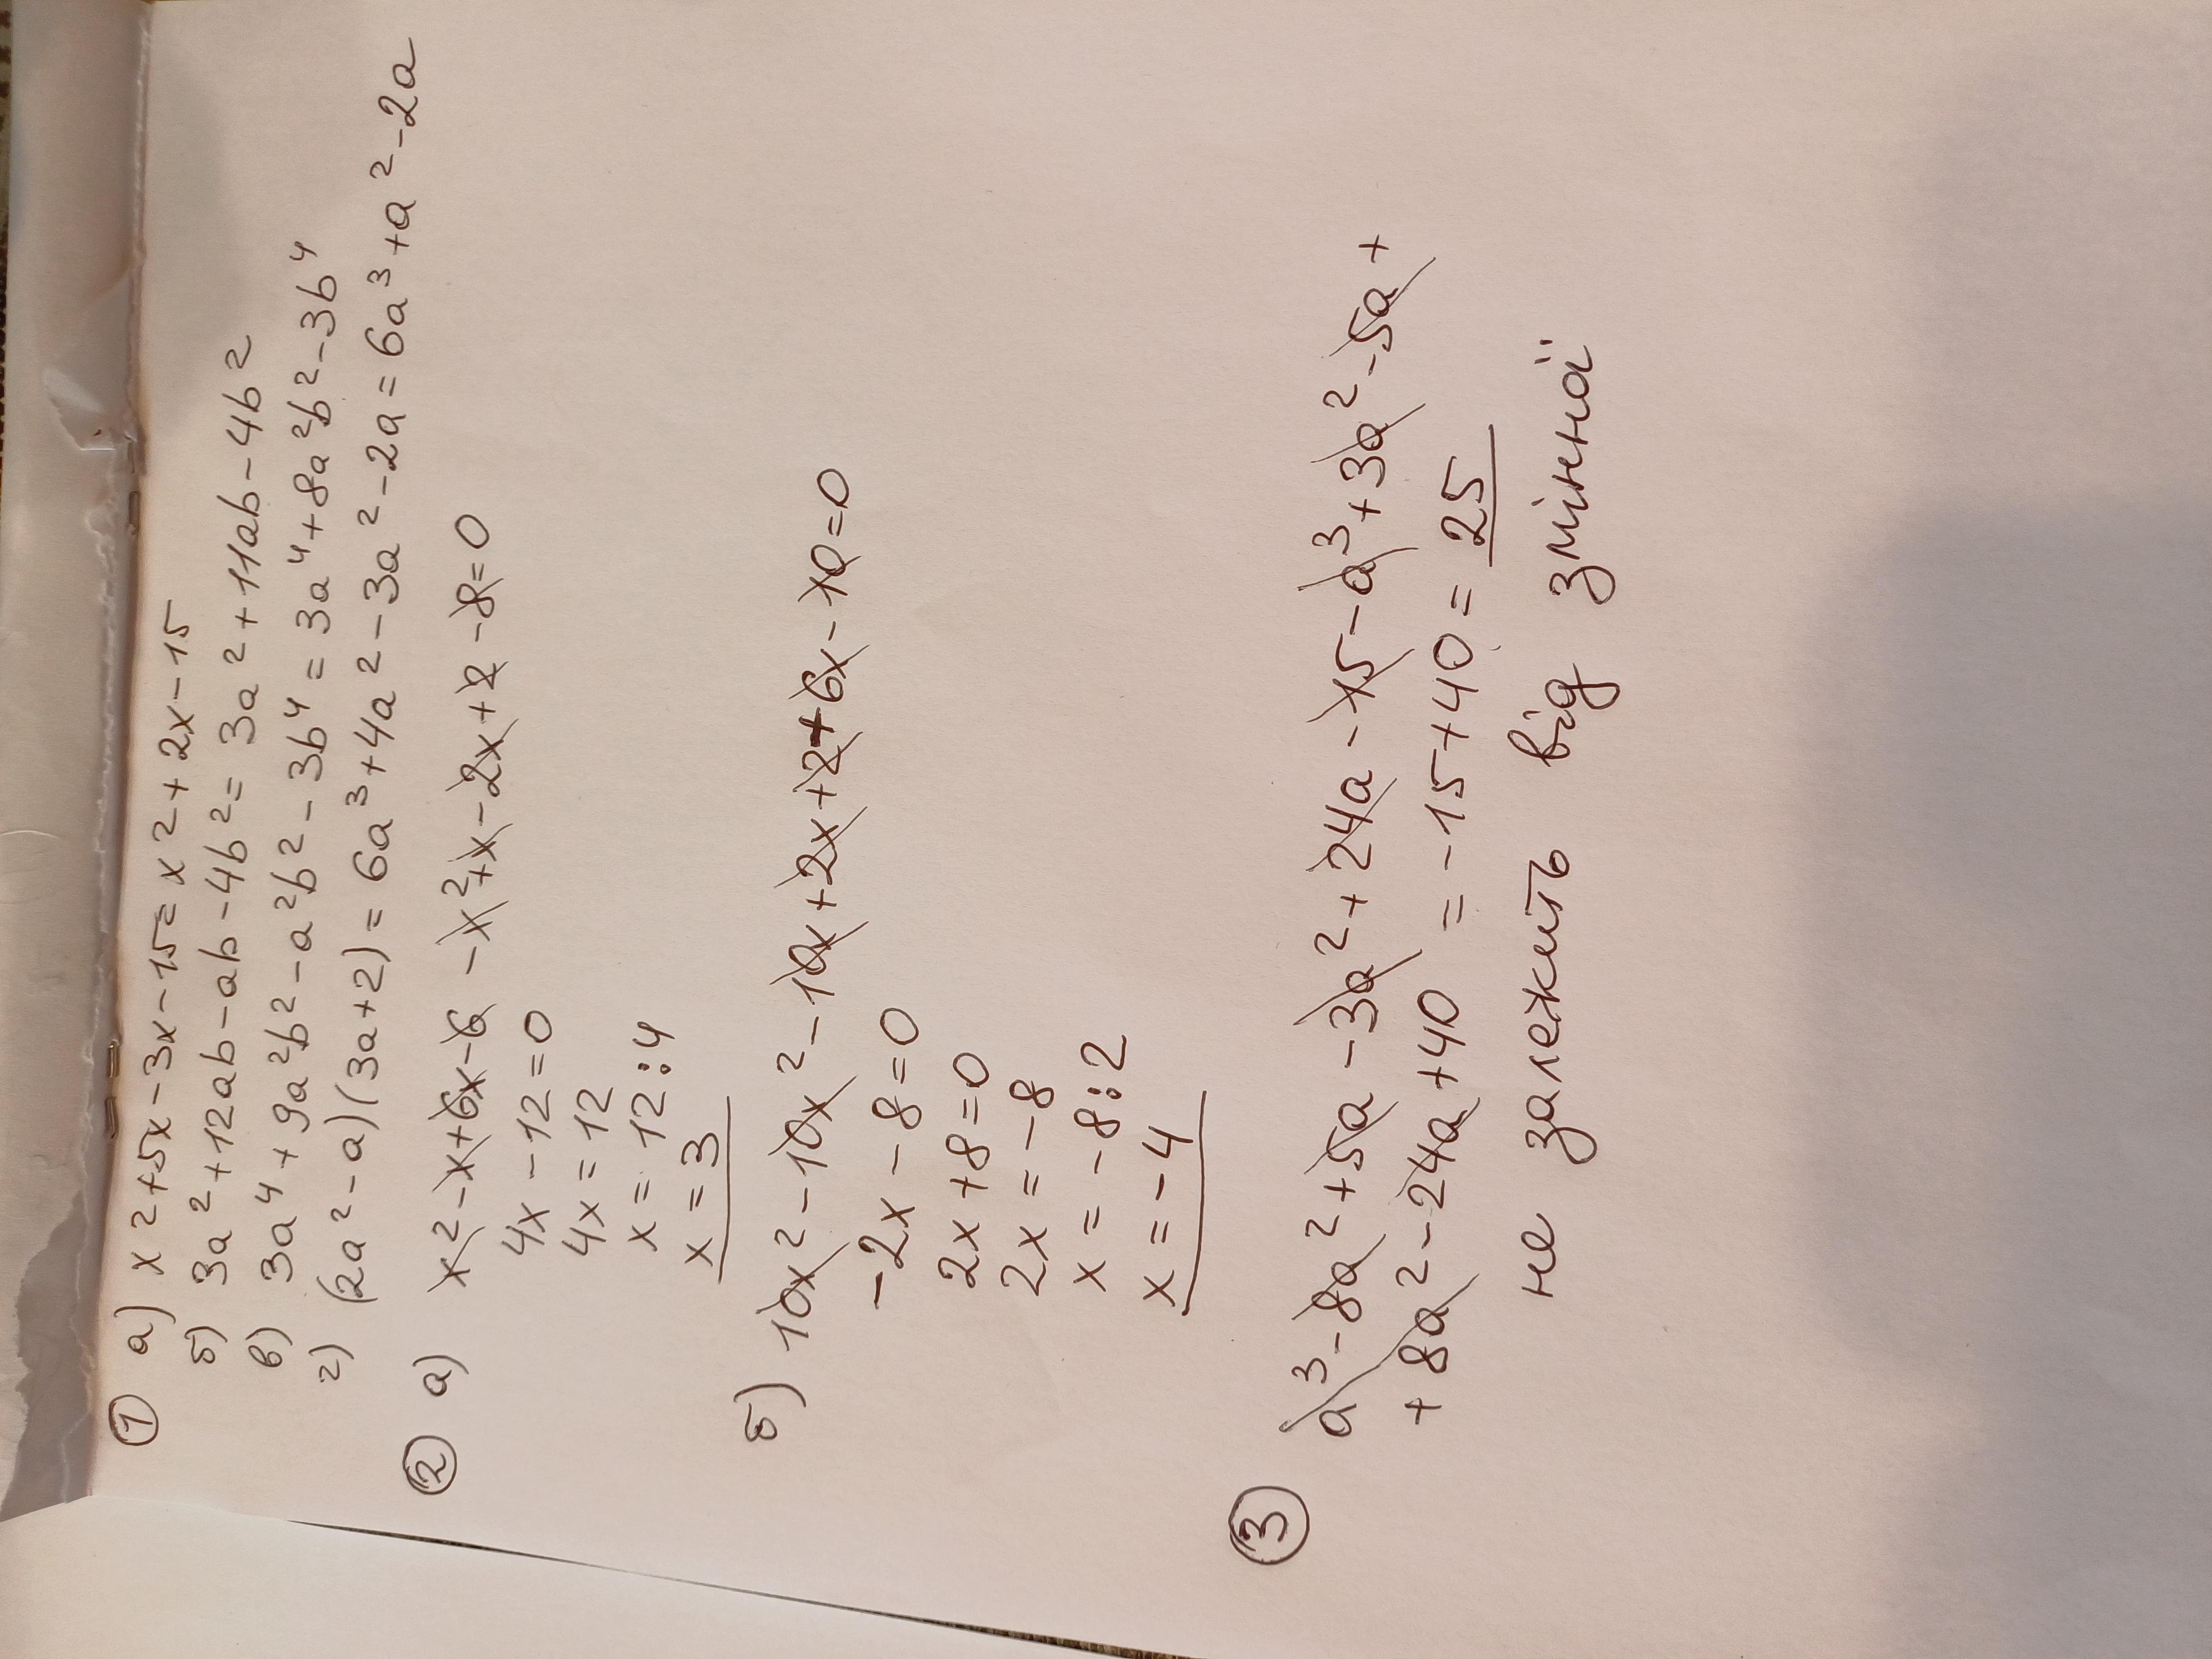 ① а) x² + 5x - 3x - 15 = x² + 2x - 15
б) 3a² + 12ab - ab - 4b² = 3a² + 11ab - 4b²
в) 3a⁴ + 9a²b² - a²b² - 3b⁴ = 3a⁴ + 8a²b² - 3b⁴
г) (2a² - a)(3a + 2) = 6a³ + 4a² - 3a² - 2a = 6a³ + a² - 2a
② а) x² - x + 6x - 6 - x² + x - 2x + 2 - 8 = 0
4x - 12 = 0
4x = 12
x = 12 : 4
x = 3
б) 10x² - 10x² - 10x + 2x + 2 + 6x - 10 = 0
-2x - 8 = 0
2x + 8 = 0
2x = -8
x = -8 : 2
x = -4
③ a³ - 8a² + 5a - 3a² + 24a - 15 - a³ + 3a² - 5a +
+ 8a² - 24a + 40 = -15 + 40 = 25
не залежить від змінної